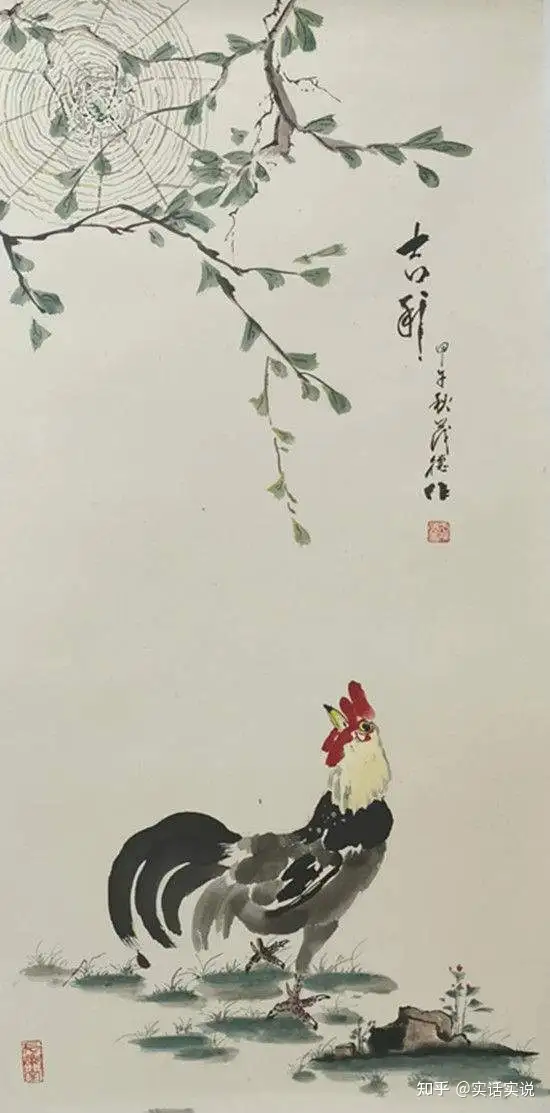 吉祥
甲午秋茂德作
知乎 @实话实说